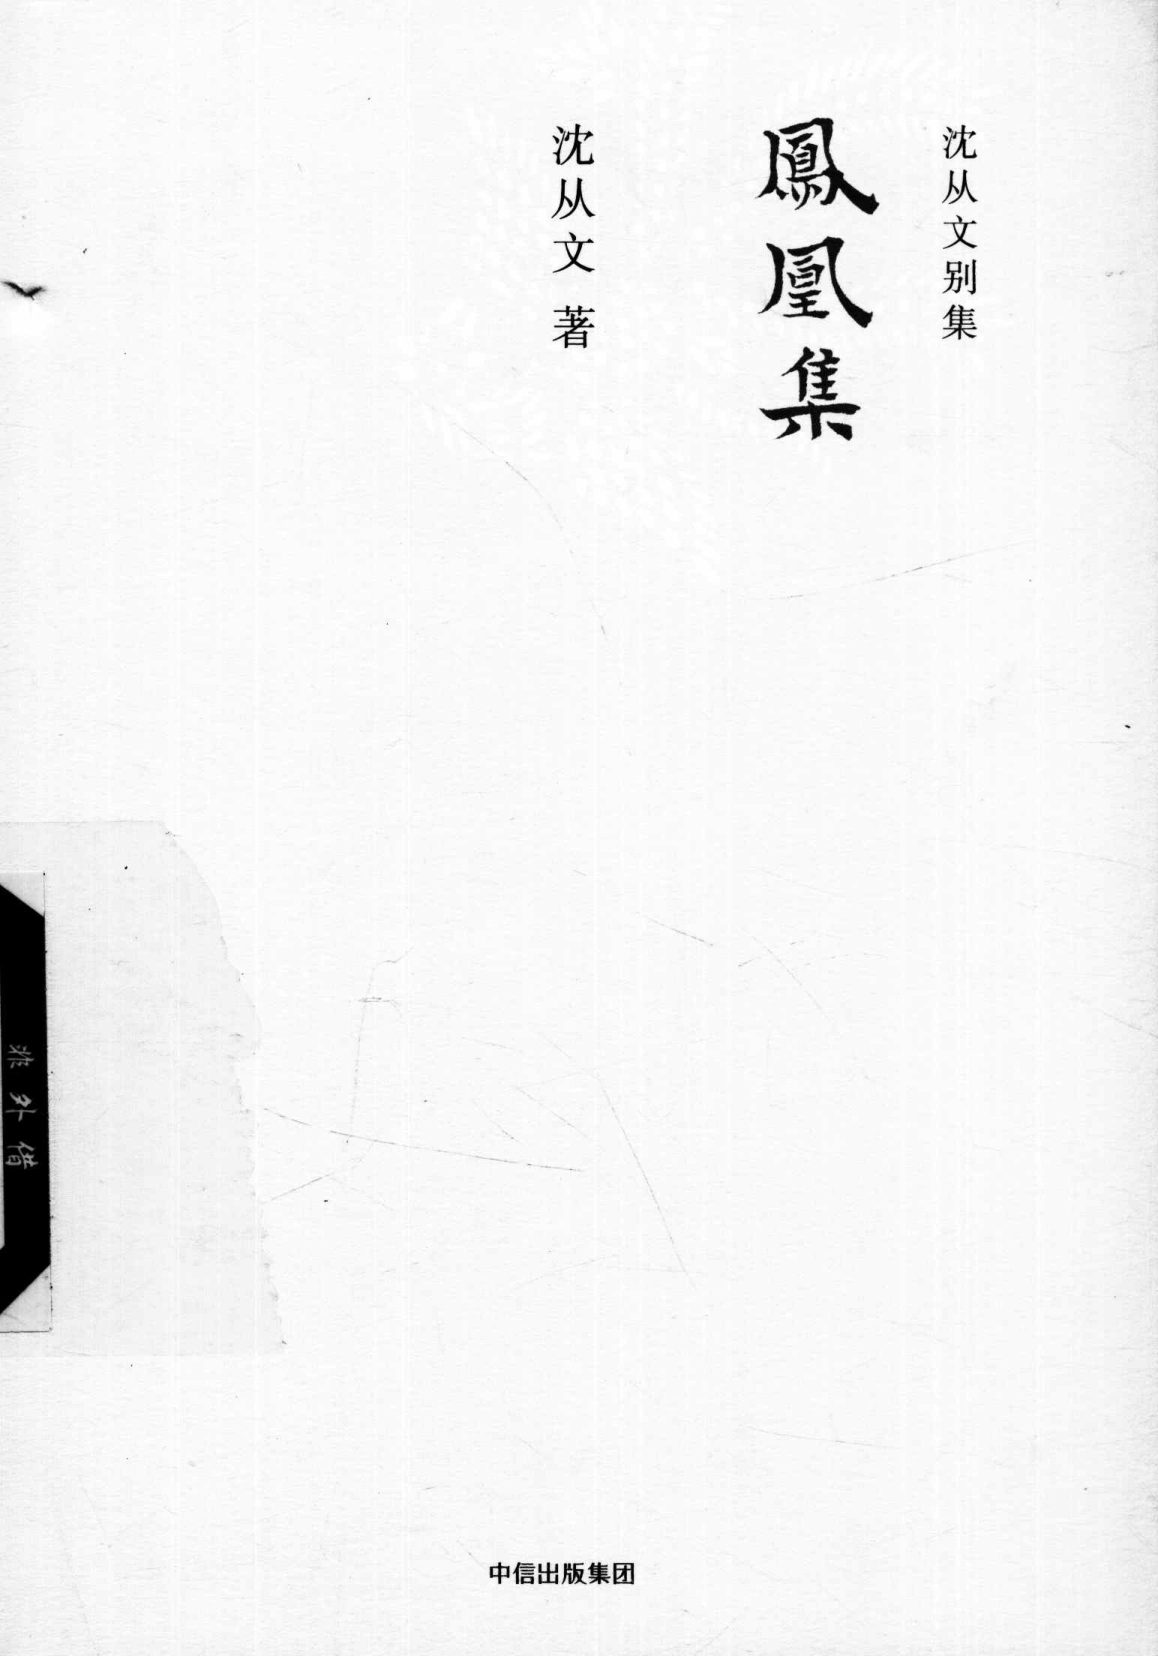 沈从文别集
鳳凰集
沈从文 著
准外借
中信出版集团